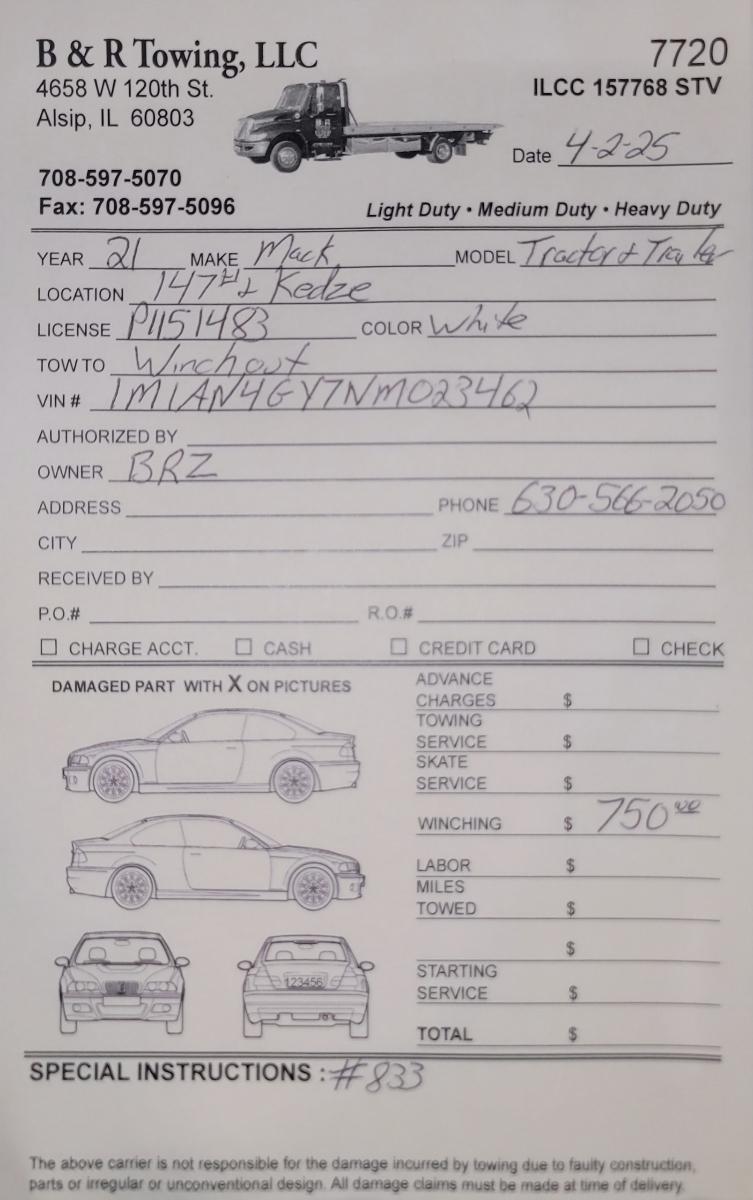 B & R Towing, LLC
7720
4658 W 120th St.
ILCC 157768 STV
Alsip, IL 60803
Date 4-2-25
708-597-5070
Fax: 708-597-5096
Light Duty • Medium Duty • Heavy Duty
YEAR 21 MAKE Mack MODEL Tractor & Trailer
LOCATION 147th & Kedze
LICENSE P1151483 COLOR White
TOW TO Winch out
VIN # 1M1AN4GY7NM023462
AUTHORIZED BY
OWNER BRZ
ADDRESS PHONE 630-566-2050
CITY ZIP
RECEIVED BY
P.O.# R.O.#
☐ CHARGE ACCT. ☐ CASH ☐ CREDIT CARD ☐ CHECK
DAMAGED PART WITH X ON PICTURES
123456
ADVANCE
CHARGES $
TOWING
SERVICE $
SKATE
SERVICE $
WINCHING $ 750.00
LABOR $
MILES
TOWED $
$
STARTING
SERVICE $
TOTAL $
SPECIAL INSTRUCTIONS : #833
The above carrier is not responsible for the damage incurred by towing due to faulty construction,
parts or irregular or unconventional design. All damage claims must be made at time of delivery.